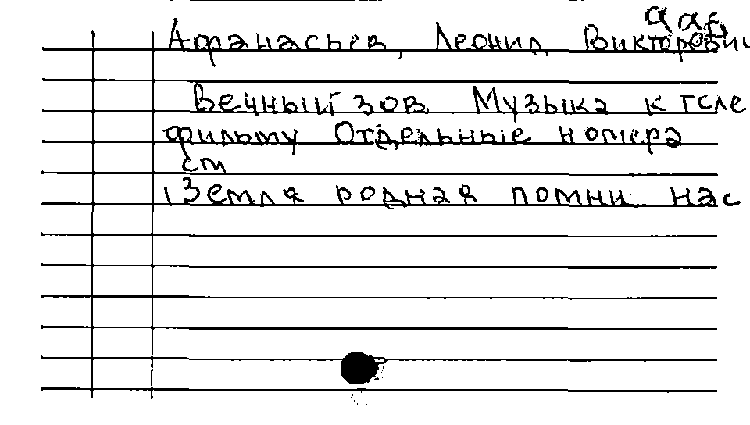 Афанасьев, Леонид Викторович
Вечный зов. Музыка к теле
фильму Отдельные номера
см
Земля родная помни нас